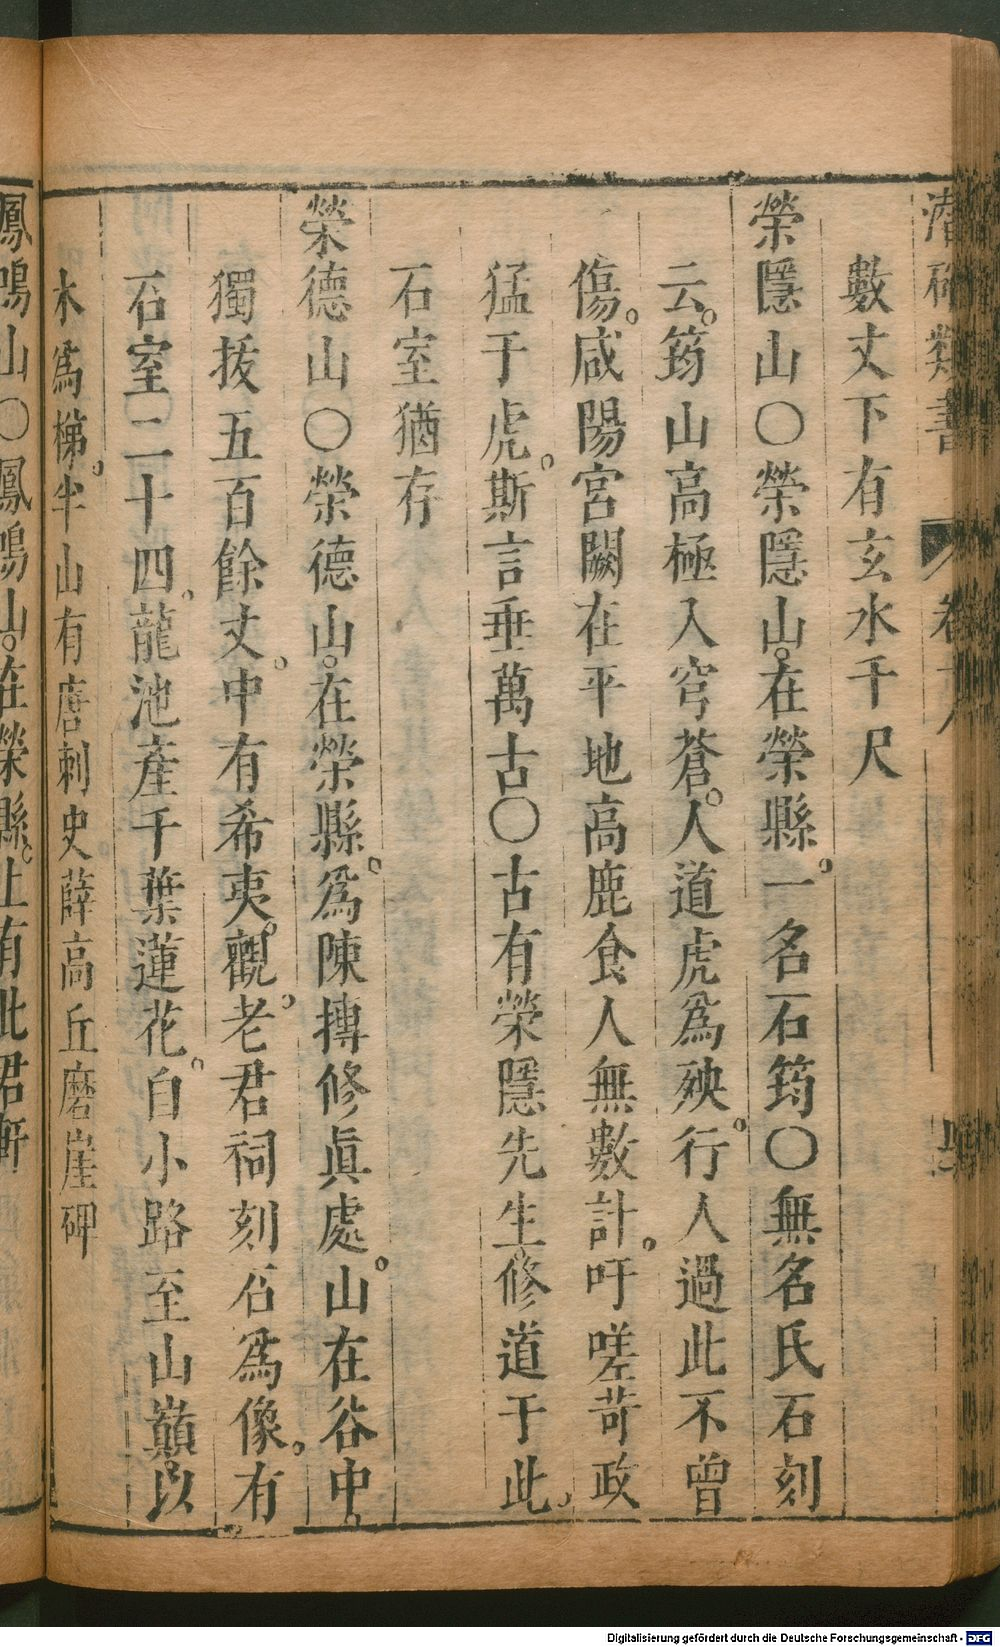 潛確類書 卷十八
數丈下有玄水千尺
榮隱山○榮隱山。在榮縣。一名石筠○無名氏石刻
云。筠山高極入穹蒼。人道虎爲殃。行人過此不曾
傷。咸陽宮闕在平地高鹿食人無數計。吁嗟苛政
猛于虎。斯言垂萬古○古有榮隱先生修道于此。
石室猶存
榮德山○榮德山。在榮縣。爲陳摶修眞處。山在谷中。
獨拔五百餘丈。中有希夷觀。老君祠刻石爲像。有
石室二十四。龍池產千葉蓮花。自小路至山巔。以
木爲梯。半山有唐刺史薛高丘磨崖碑
鳳鳴山○鳳鳴山。在榮縣。上有此君軒
Digitalisierung gefördert durch die Deutsche Forschungsgemeinschaft - DFG